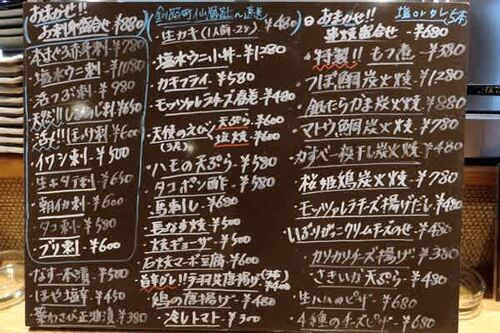 おまかせ!!
お刺身盛合せ ¥880
本まぐろ赤身刺 ¥780
塩水ウニ刺 ¥1080
活つぶ刺 ¥980
天然!! しまあじ刺 ¥650
活〆!! ほっけ刺 ¥600
イワシ刺 ¥500
生ホタテ刺 ¥650
朝イカ刺 ¥600
タコ刺 ¥580
ブリ刺 ¥600
なす一本漬 ¥500
ほや塩辛 ¥450
葉わさび正油漬 ¥380
釧路町仙鳳趾より直送
生カキ(1人前・2ヶ) ¥480
塩水ウニ小丼 ¥1280
カキフライ ¥580
モッツァレラチーズ春巻 ¥480
天使のえび 天ぷら ¥600
塩焼 ¥600
ハモの天ぷら ¥580
タコポン酢 ¥580
馬刺し ¥680
長なす焼 ¥500
焼ギョーザ ¥500
石焼マーボ豆腐 ¥680
鶏の唐揚げ ¥480
冷しトマト ¥300
おまかせ!! 塩orタレ 5本
串焼盛合せ ¥680
特製!! もつ煮 ¥380
つぼ鯛炭火焼 ¥780
銀たらかま炭火焼 ¥880
マトウ鯛炭火焼 ¥780
かすべ一夜干し炭火焼 ¥480
桜姫鶏炭火焼 ¥780
モッツァレラチーズ揚げだし ¥480
いぶりがっこクリームチーズのせ ¥480
カリカリチーズ揚げ ¥380
さきいか天ぷら ¥480
生ハムのピザ ¥680
4種のチーズピザ ¥680